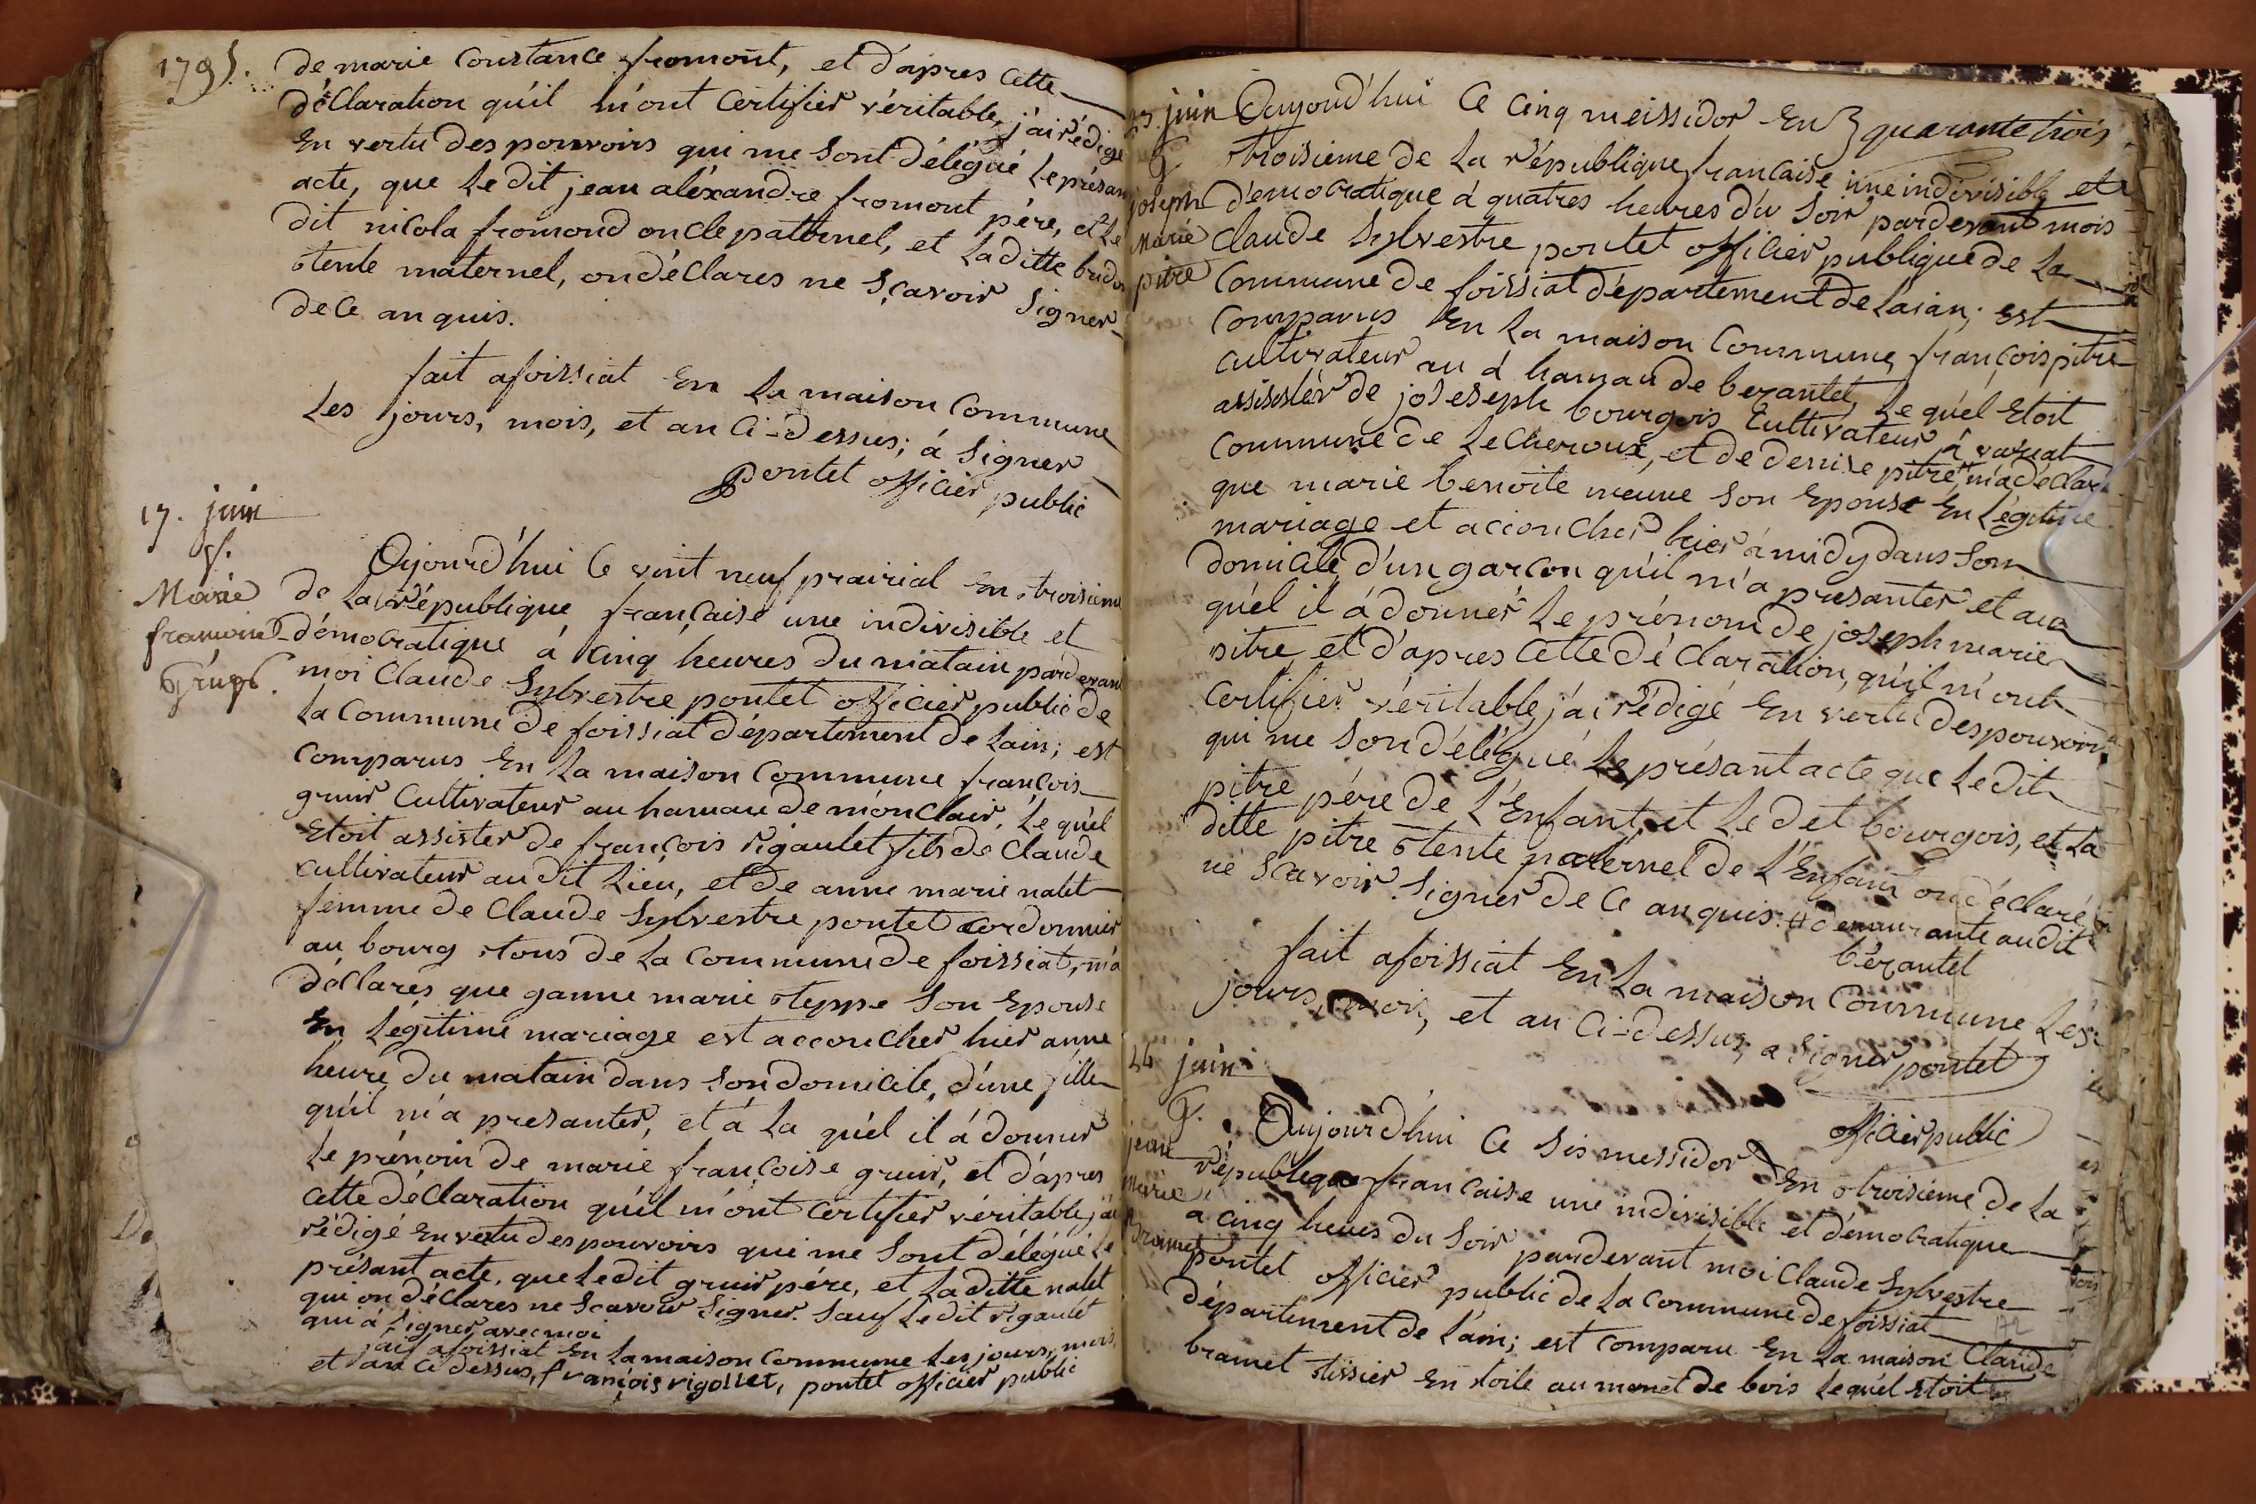 1795.
de marie Constance fromont, et d'apres Cette
déClaration qu'il m'ont Certifier véritable, j'ai rédigé
En vertu des pouvoirs qui me sont délégué Le présan
acte, que Le dit jean aléxandre fromont pére, et Le
dit nicola fromond oncle patternel, et Laditte bridon
tente maternel, on déClares ne sçavoir signer
de Ce anquis.
fait afoissiat En La maison Commune
Les jours, mois, et an Ci-dessus; á signer
pontet officier public
17. juin
Marie
francoise
Oujourd'hui Ce vint neuf prairial En troisieme
de La république française une indivisible et
démocratique á Cinq heures du matain pardevan
moi Claude Sylvestre pontet officier public de
La Commune de foissiat département de Lain; est
Comparus En La maison Commune françois
gruir Cultivateur au hamau de monClair, Le quél
Etoit assister de françois rigaulet fils de Claude
cultivateur au dit Lieu, et de anne marie nalet
femme de Claude Sylvestre pontet Cordonnier
au bourg tous de La Commune de foissiat, m'a
déClares que ganne marie teppe son Epouse
En Légitime mariage est accoucher hier anne
heure du matain dans son domicile, d'une fille
qu'il m'a presanter, et á La quél il á donner
Le prénom de marie françoise gruir, et d'apres
Cette déClaration qu'il m'ont Certifier véritable j'ai
rédigé En vertu des pouvoirs qui me sont délégué Le
présant acte, que Le dit gruir pére, et La ditte nalet
qui on déClares ne scavoir signer. sauf Le dit rigaulet
qui á signer avec moi
fait afoissiat En La maison Commune Les jours, mois,
et an Ci dessus, françois rigollet, pontet officier public
23. juin
joseph
Marie
pitre
Oujourd'hui Ce Cinq meissidor En quarante trois
troisieme de La république francaise une indivisible et
démocratique á quatres heures du soir pardevant mois
Claude Sylvestre pontet officier publique de La
Commune de foissiat département de Laian; est
Comparus En La maison Commune, françois pitre
Cultivateur au d hamau de bezantet, Le quél Etoit
assisster de joseseph bourgois Cultivateur á
Commune de Lecheroux, et de denise pitre, m'a déClar
que marie benoite neuve son Epouse En Légitime
mariage et accioucher hier á midy dans son
domicile d'un garcon qu'il m'a presanter et au
quél il á donner Le prénom de joseph marie
pitre, et d'apres Cette déClaration, qu'il m'ont
Certifier véritable, j'ai rédigé En vertu des pouvoirs
qui me son délégué Le présant acte que Le dit
pitre pére de L'Enfant, et Le det bourgois, et La
ditte pitre tente paternel de L'Enfant on déClaré
ne scavoir signer de Ce anquis. # demeurante au dit
bézantet
fait afoissiat En La maison Commune Les
jours, mois, et an Ci-dessus, a signer pontet
officier public
24 juin
jean
Marie
Bramet
Oujourd'hui Ce sis messidor En troisieme de La
république francaise une indivisible et démocratique
a cinq heures du soir pardevant moi Claude Sylvestre
pontet officier public de La Commune de foissiat
département de L'ain; est Comparu En La maison Claude
bramet tissier En toile au monet de bois Lequél Etoit